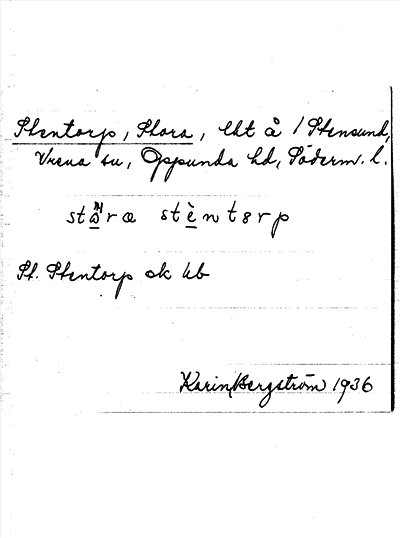 Stentorp, Stora, lht å 1 Stensund,
Vrena sn, Oppunda hd, Söderm. l.
stɷ̀ræ stèntɵrp
St. Stentorp ek kb
Karin Bergström 1936